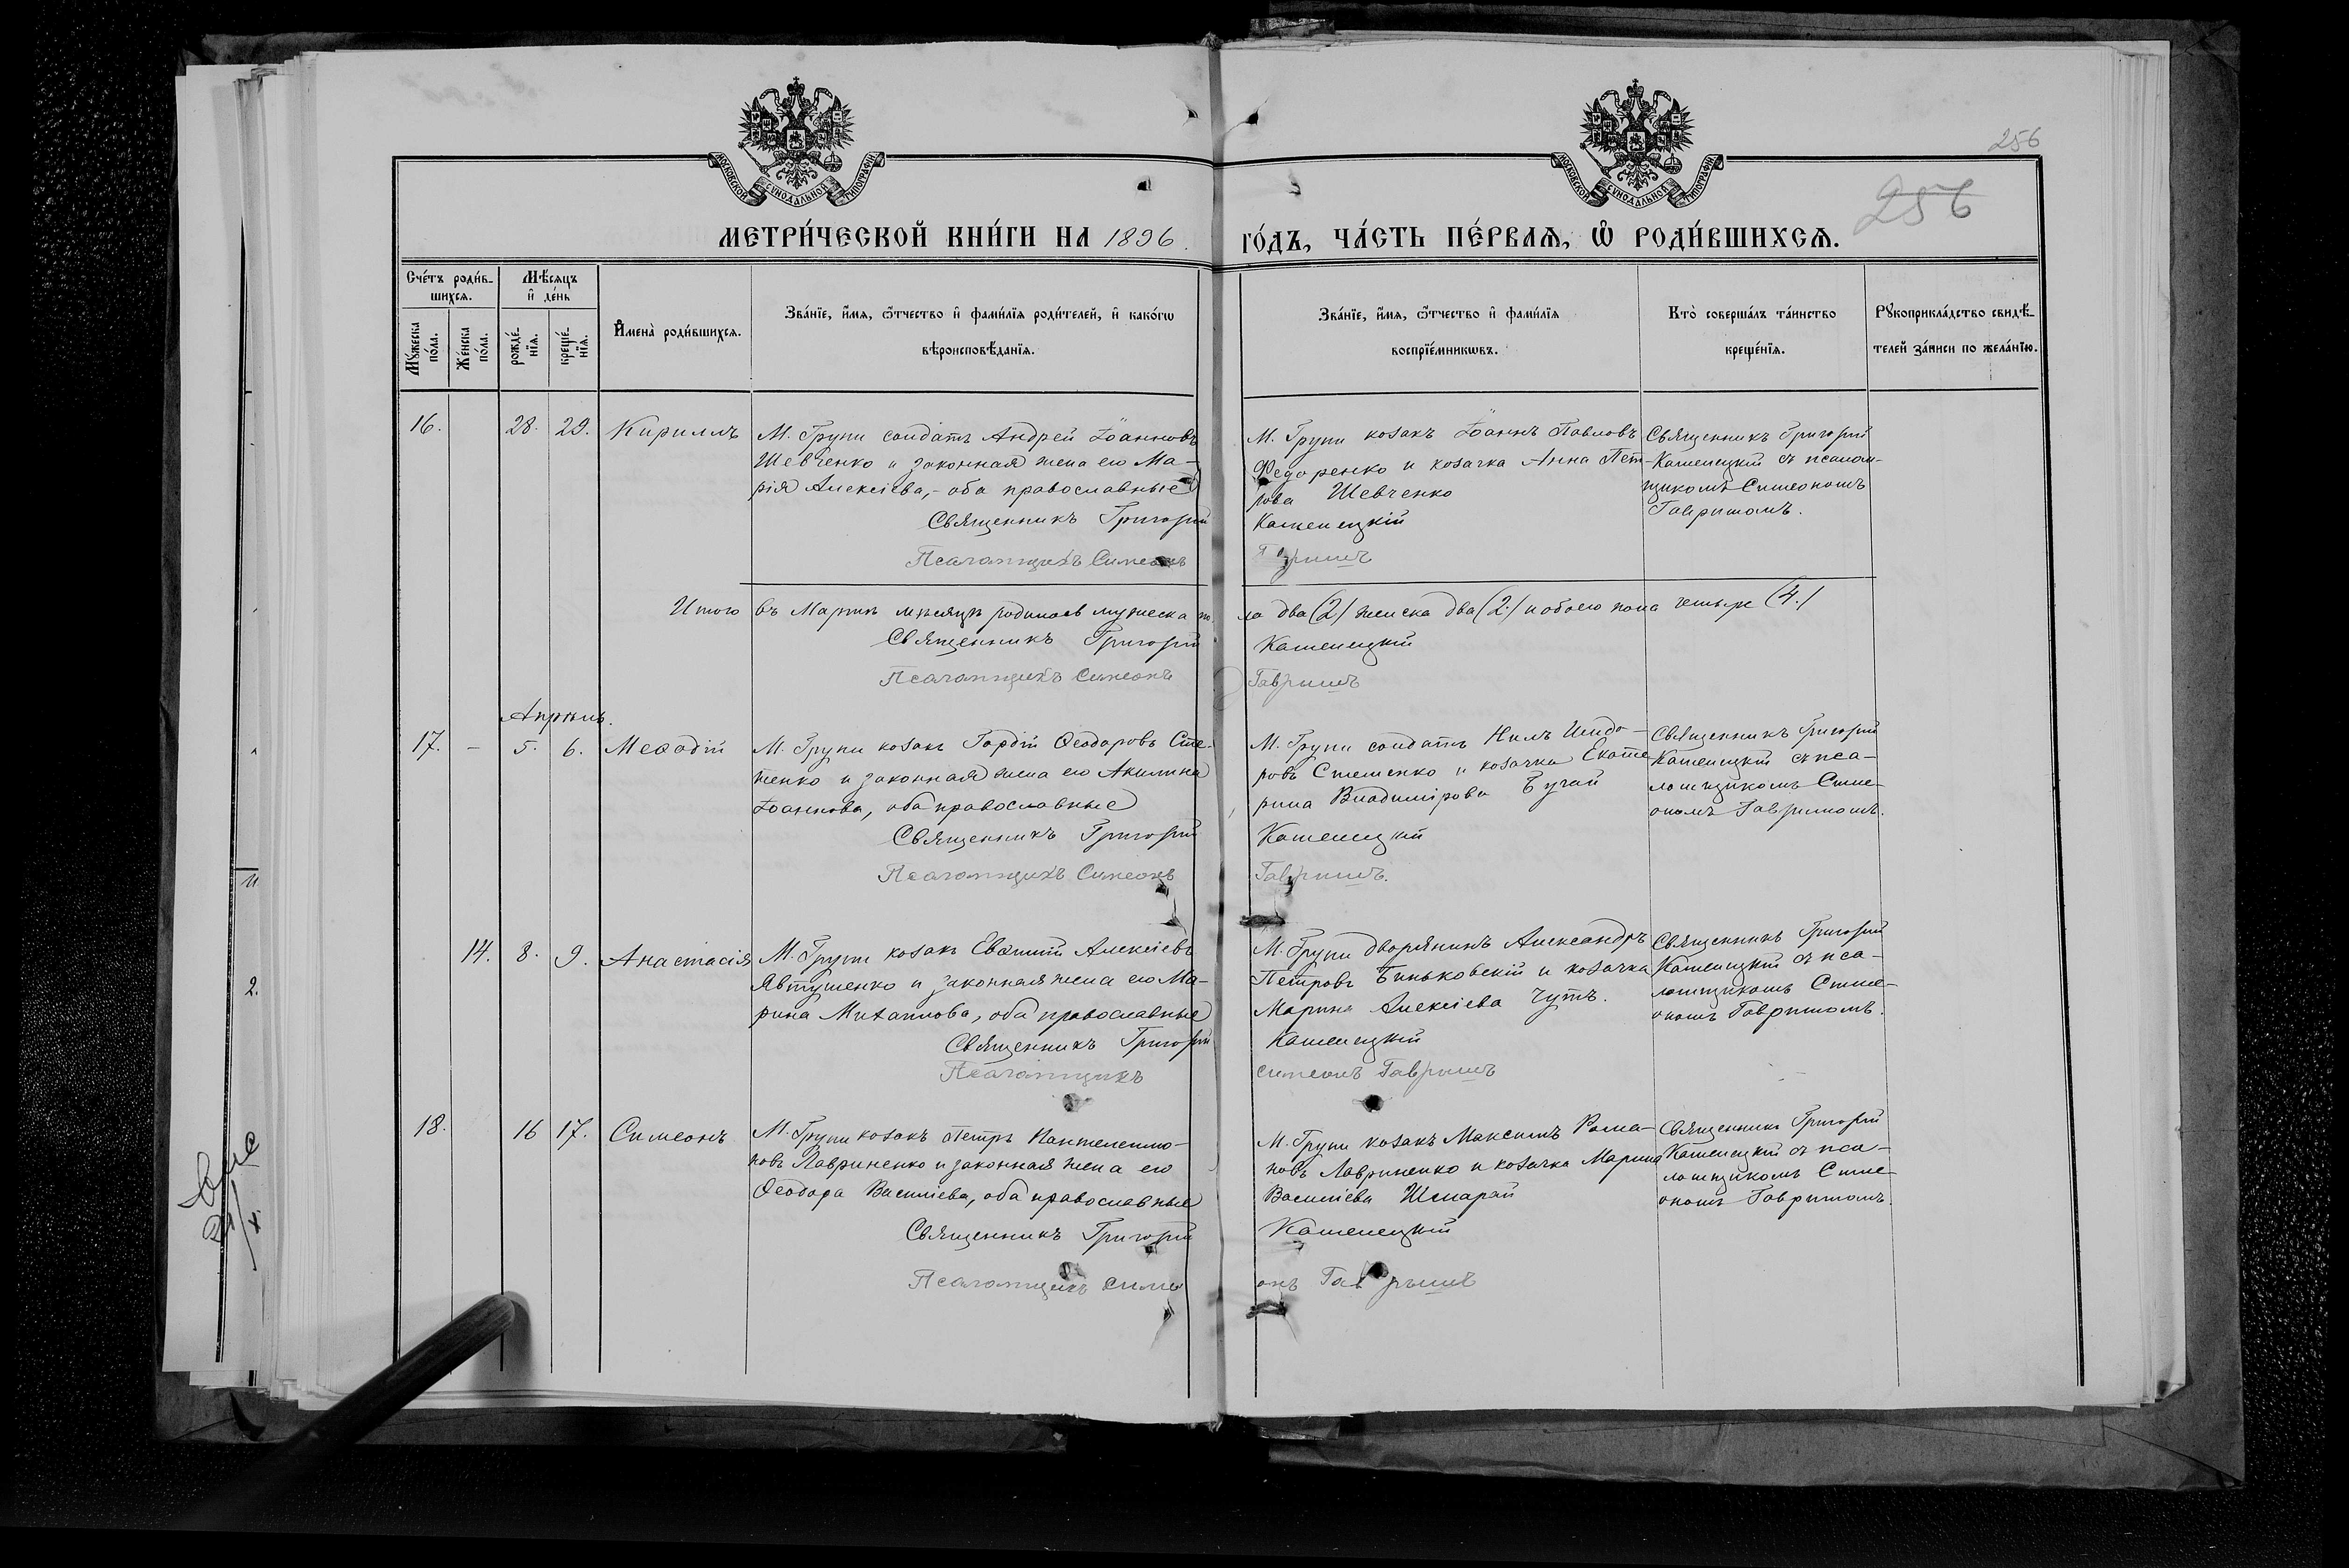 256
256
МОСКОВСКОЙ СУНОДАЛЬНОЙ ТИПОГРАФІИ
МОСКОВСКОЙ СУНОДАЛЬНОЙ ТИПОГРАФІИ
МЕТРИ́ЧЕСКОЙ КНИ́ГИ НА 1896 ГО́ДЪ, ЧА́СТЬ ПЕ́РВАѦ, Ѡ҆ РОДИ́ВШИХСѦ.
Сче́тъ роди́в-
шихсѧ.
Мѣ́сѧцъ
и҆ де́нь
Мꙋ́жеска
по́ла.
Же́нска
по́ла.
рожде́-
нїѧ.
креще́-
нїѧ.
И҆мена̀ роди́вшихсѧ.
Зва́нїе, и҆́мѧ, ѻ҆́тчество и҆ фами́лїѧ роди́телей, и҆ како́гѡ
вѣроисповѣ́данїѧ.
Зва́нїе, и҆́мѧ, ѻ҆́тчество и҆ фами́лїѧ
воспрїе́мникѡвъ.
Кто̀ соверша́лъ та́инство
креще́нїѧ.
Рꙋкоприкла́дство свидѣ́-
телей за́писи по жела́нїю.
16. 28. 29. Кириллъ
М. Груни солдатъ Андрей Іоанновъ
Шевченко и законная жена его Ма-
рія Алексіева, - оба православные
Священникъ Григорій
Псаломщикъ Симеонъ
М. Груни козакъ Іоаннъ Павловъ
Федоренко и козачка Анна Пет-
рова Шевченко
Каменецкій
Гавришъ
Священникъ Григорій
Каменецкій съ псалом-
щикомъ Симеономъ
Гавришомъ.
Итого въ Мартѣ мѣсяцѣ родилось мужеска по-
ла два (2) женска два (2.) и обоего пола четыре (4.)
Священникъ Григорій
Каменецкій
Псаломщикъ Симеонъ
Гавришъ
Апрѣль.
17. - 5. 6. Меѳодій
М. Груни козакъ Гордій Ѳеодоровъ Сте-
ценко и законная жена его Акилина
Іоаннова, оба православные
Священникъ Григорій
Псаломщикъ Симеонъ
М. Груни солдатъ Нилъ Исидо-
ровъ Стеценко и козачка Екате-
рина Владимірова Бугай
Каменецкій
Гавришъ.
Священникъ Григорій
Каменецкій съ пса-
ломщикомъ Симе-
ономъ Гавришомъ.
14. 8. 9. Анастасія
М. Груни козакъ Евѳимій Алексіевъ
Явтушенко и законная жена его Ма-
рина Михаилова, оба православные
Священникъ Григорій
Псаломщикъ
М. Груни дворянинъ Александръ
Петровъ Биньковскій и козачка
Марина Алексіева Чутъ.
Каменецкій
Симеонъ Гавришъ
Священникъ Григорій
Каменецкій съ пса-
ломщикомъ Симе-
ономъ Гавришомъ.
18. 16 17. Симеонъ
М. Груни козакъ Петръ Пантелеимо-
новъ Лавриненко и законная жена его
Ѳеодора Василіева, оба православные
Священникъ Григорій
Псаломщикъ Симе
М. Груни козакъ Максимъ Рома-
новъ Лавриненко и козачка Марина
Василіева Шмарай
Каменецкій
онъ Гавришъ
Священникъ Григорій
Каменецкій съ пса-
ломщикомъ Симе-
ономъ Гавришомъ.
11
2.